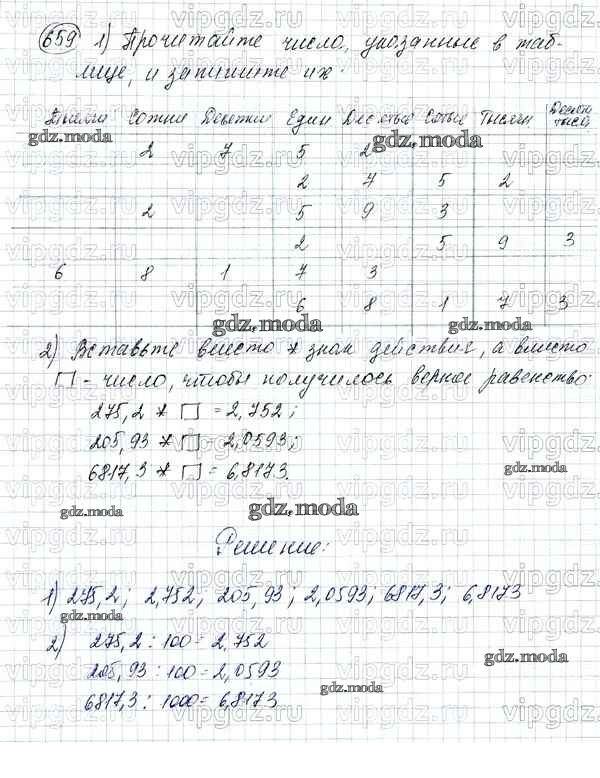 659 1) Прочитайте числа, указанные в таб-
лице, и запишите их.
Тысячи Сотни Десятки Един Десятые Сотые Тысячн. Десят. тысяч.
2 7 5 2
2 7 5 2
2 5 9 3
2 5 9 3
6 8 1 7 3
6 8 1 7 3
2) Вставьте вместо * знак действия, а вместо
□ - число, чтобы получилось верное равенство:
275,2 * □ = 2,752;
205,93 * □ = 2,0593;
6817,3 * □ = 6,8173.
Решение:
1) 275,2; 2,752; 205,93; 2,0593; 6817,3; 6,8173
2) 275,2 : 100 = 2,752
205,93 : 100 = 2,0593
6817,3 : 1000 = 6,8173
gdz.moda
vipgdz.ru